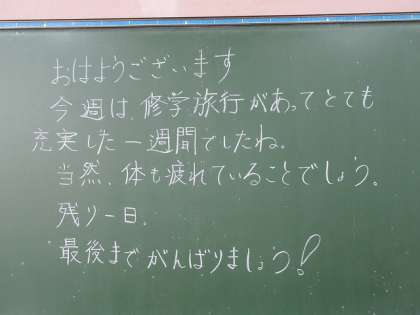 おはようございます
今週は、修学旅行があってとても
充実した一週間でしたね。
当然、体も疲れていることでしょう。
残り一日、
最後までがんばりましょう!